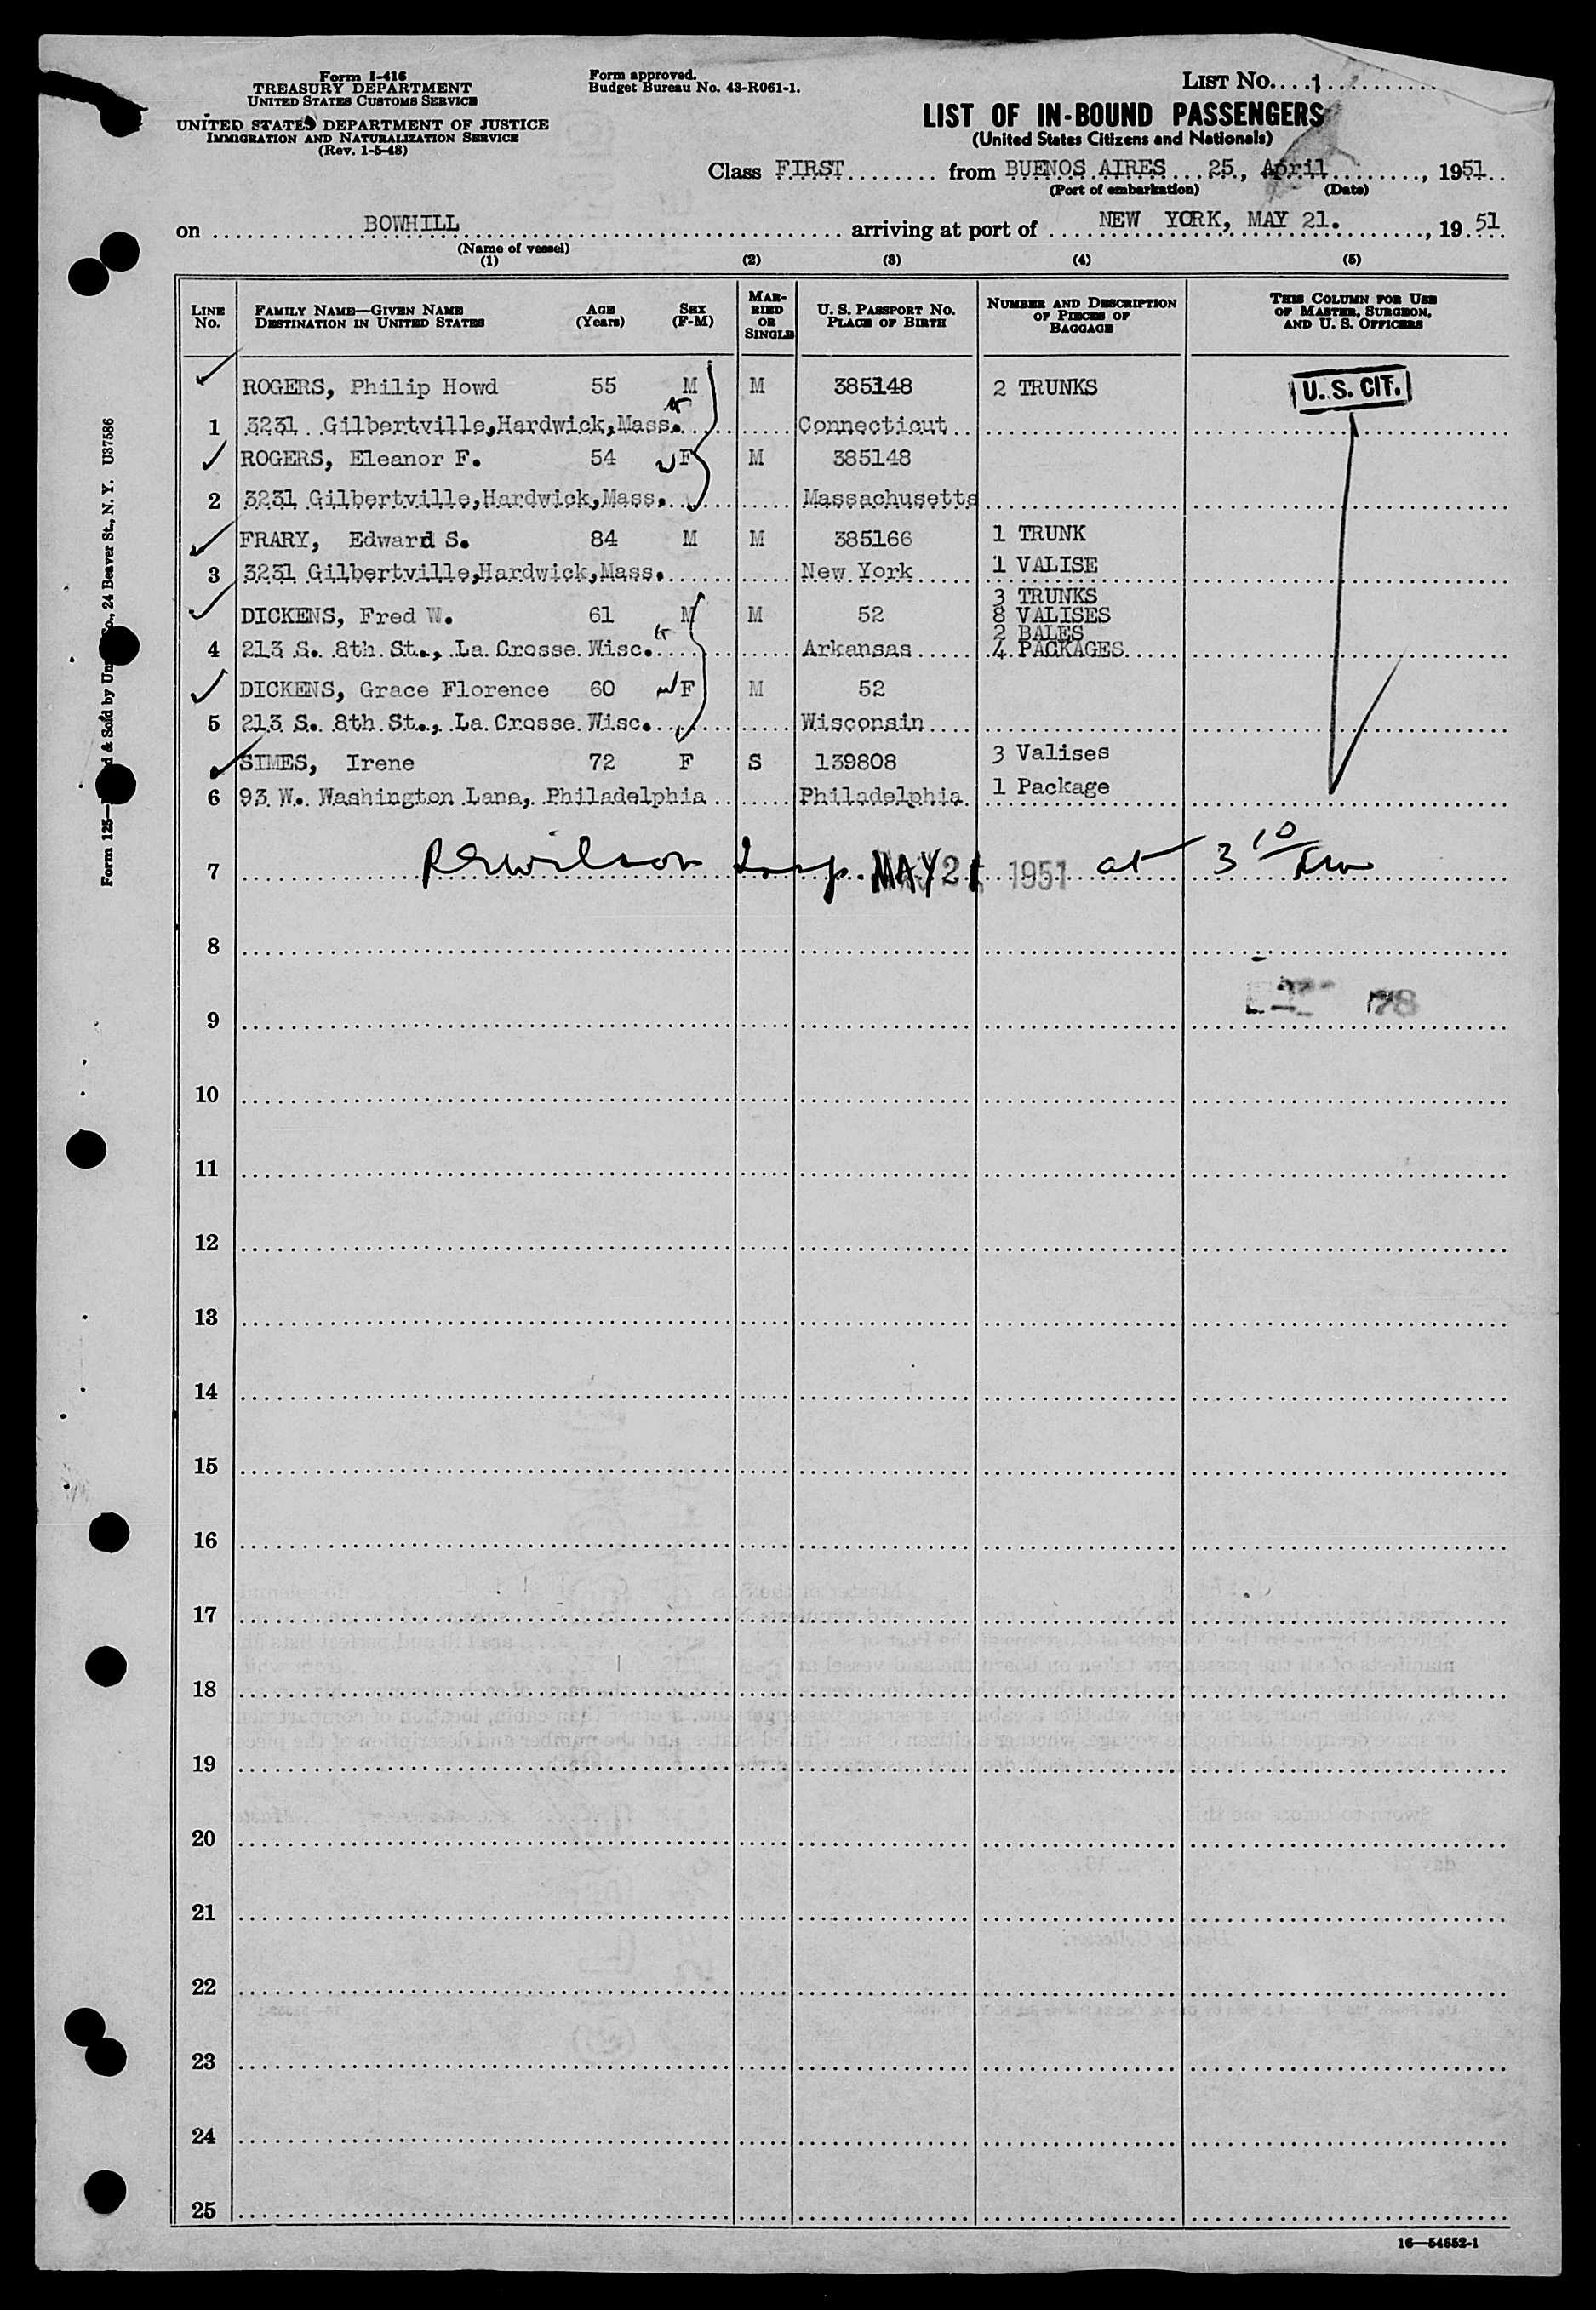 Form I-416
TREASURY DEPARTMENT
UNITED STATES CUSTOMS SERVICE
UNITED STATES DEPARTMENT OF JUSTICE
IMMIGRATION AND NATURALIZATION SERVICE
(Rev. 1-5-48)
Form approved.
Budget Bureau No. 43-R061-1.
LIST NO. 1
LIST OF IN-BOUND PASSENGERS
(United States Citizens and Nationals)
Class FIRST from BUENOS AIRES 25, April, 1951
(Port of embarkation) (Date)
on BOWHILL arriving at port of NEW YORK, MAY 21. , 19 51
(Name of vessel)
(1) (2) (3) (4) (5)
LINE NO. FAMILY NAME—GIVEN NAME DESTINATION IN UNITED STATES AGE (Years) SEX (F-M) MARRIED OR SINGLE U. S. PASSPORT NO. PLACE OF BIRTH NUMBER AND DESCRIPTION OF PIECES OF BAGGAGE THIS COLUMN FOR USE OF MASTER, SURGEON, AND U. S. OFFICERS
ROGERS, Philip Howd 55 M M 385148 2 TRUNKS U. S. CIT.
1 3231 Gilbertville,Hardwick,Mass. Connecticut
ROGERS, Eleanor F. 54 F M 385148
2 3231 Gilbertville,Hardwick,Mass. Massachusetts
FRARY, Edward S. 84 M M 385166 1 TRUNK
3 3231 Gilbertville,Hardwick,Mass. New York 1 VALISE
3 TRUNKS
DICKENS, Fred W. 61 M M 52 8 VALISES
2 BALES
4 213 S. 8th St., La Crosse Wisc. Arkansas 4 PACKAGES
DICKENS, Grace Florence 60 F M 52
5 213 S. 8th St., La Crosse Wisc. Wisconsin
SIMES, Irene 72 F S 139808 3 Valises
6 93 W. Washington Lane, Philadelphia Philadelphia 1 Package
7 REWilson Insp. MAY 21 1951 at 3 10
8
9 78
10
11
12
13
14
15
16
17
18
19
20
21
22
23
24
25
16—54652-1
Form 125— & Sold by Co., 24 Beaver St., N. Y. U37586